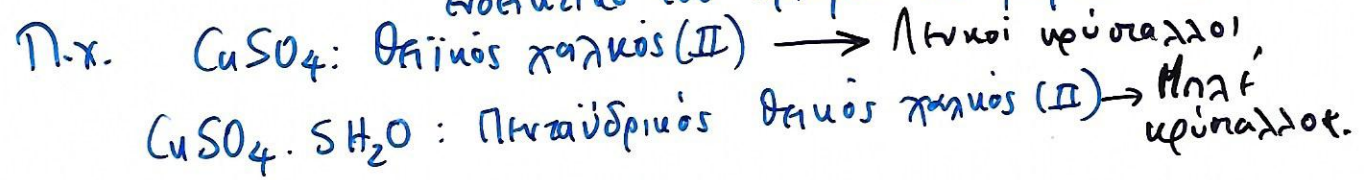 Π.χ. CuSO₄: Θειϊκός χαλκός (II) ⟶ Λευκοί κρύσταλλοι,
CuSO₄ . 5H₂O : Πενταϋδρικός θειικός χαλκός (II) → Μπλέ κρύσταλλοι.